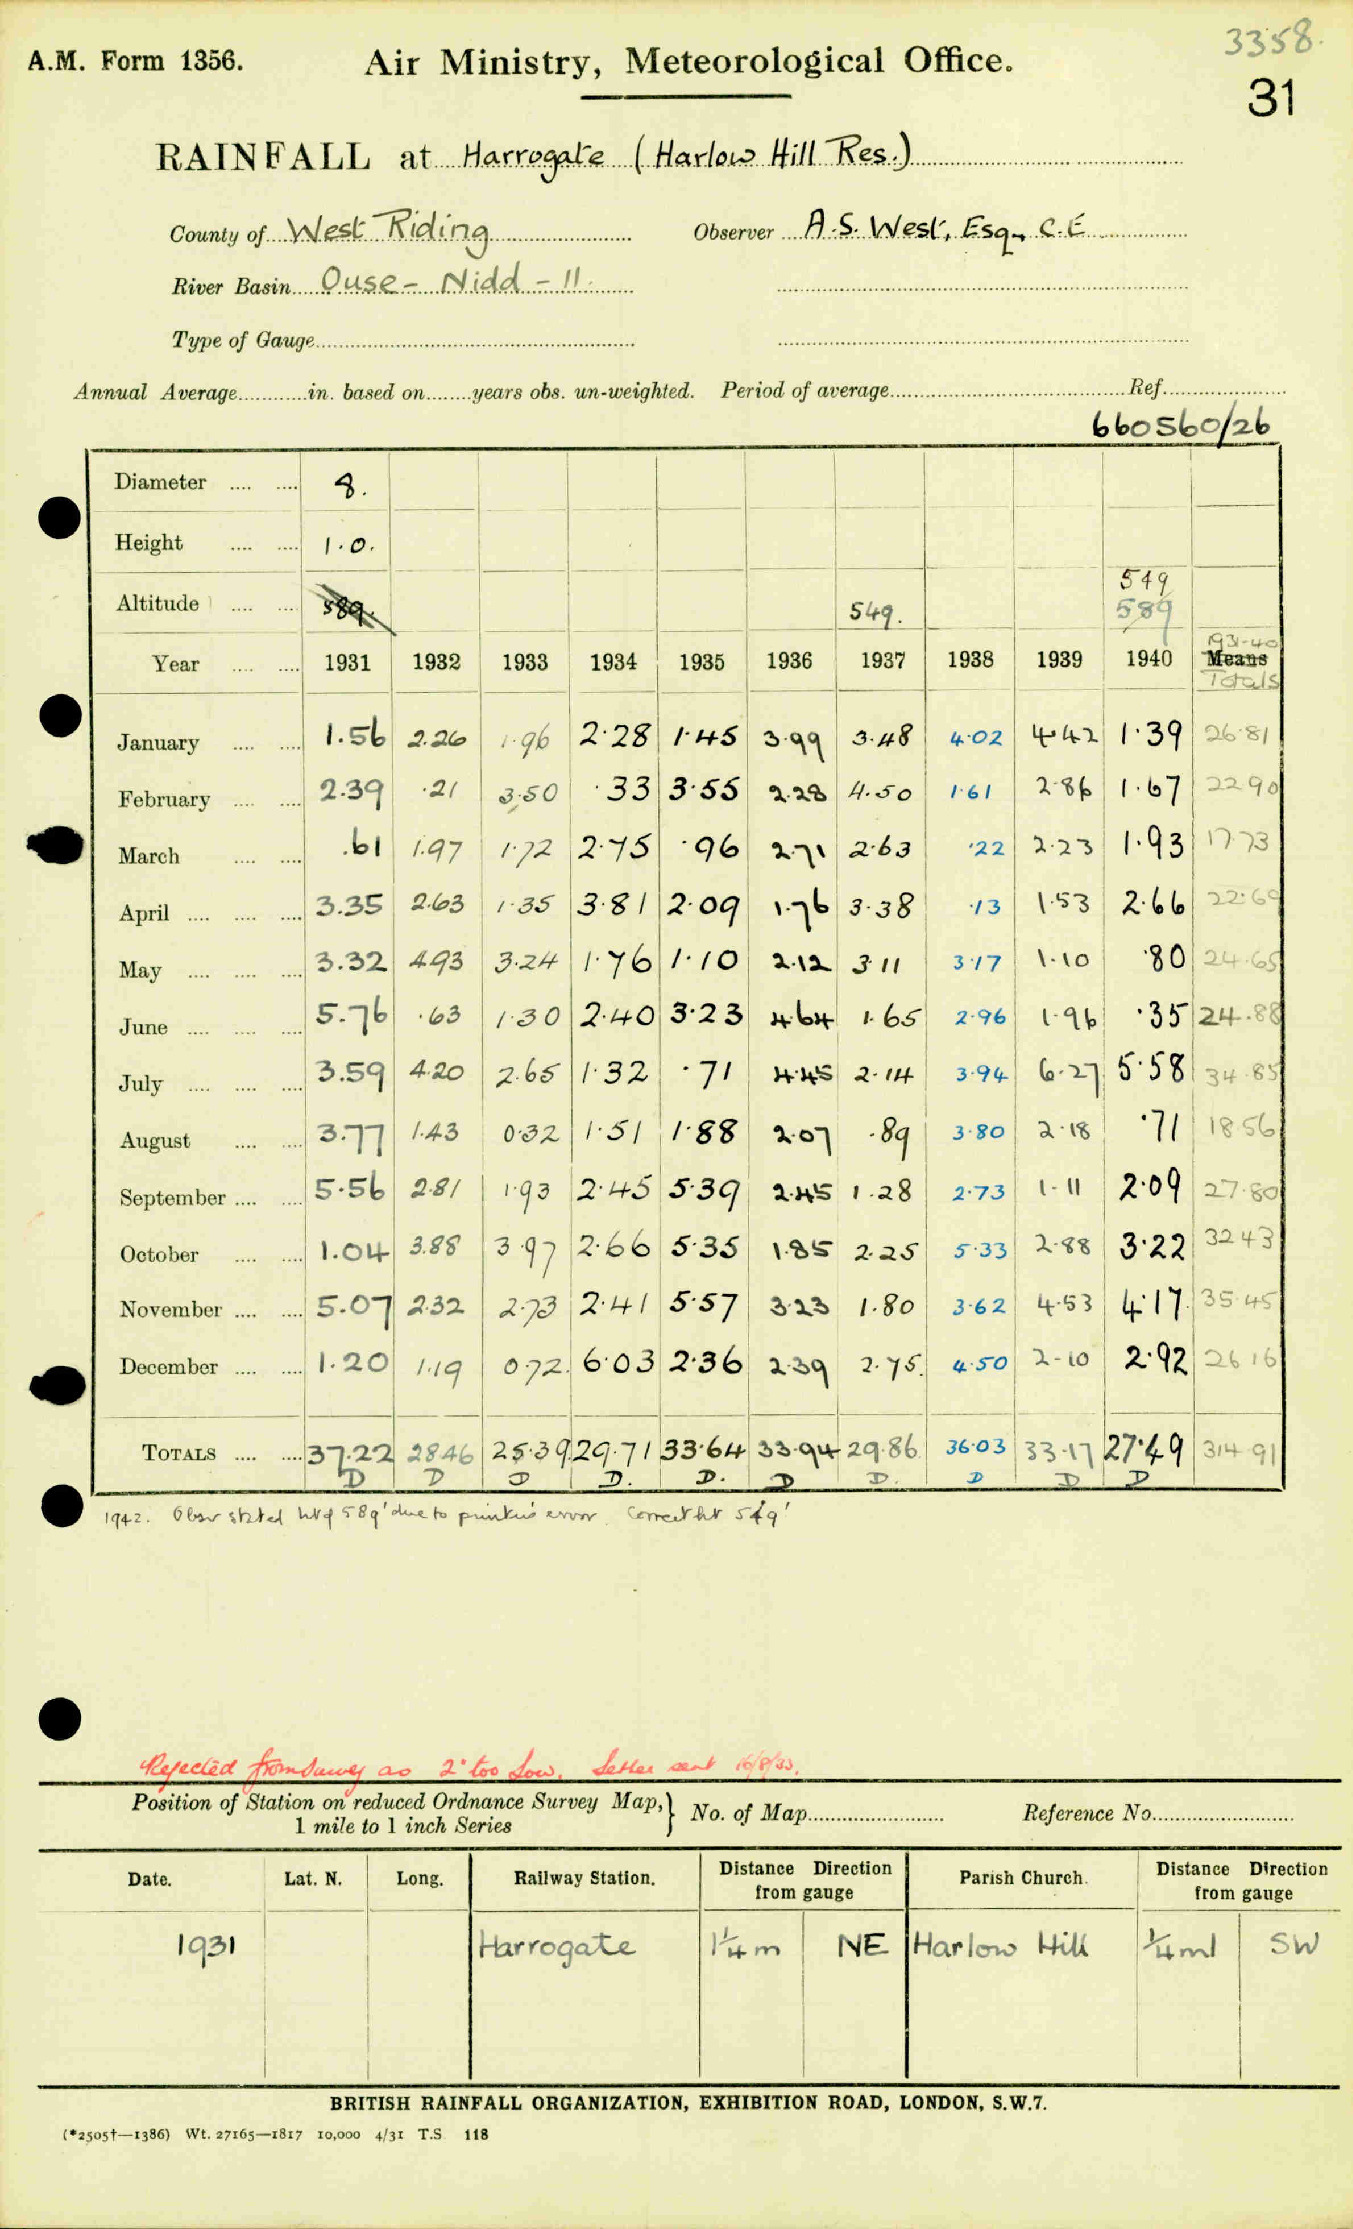 3358.
A.M. Form 1356. Air Ministry, Meteorological Office.
31
RAINFALL at Harrogate (Harlow Hill Res.)
County of West Riding Observer A.S. West, Esq., C.E.
River Basin Ouse - Nidd - 11.
Type of Gauge
Annual Average in. based on years obs. un-weighted. Period of average Ref.
660560/26
Diameter 8.
Height 1.0.
549
Altitude 589. 549. 589
1931-40
Year 1931 1932 1933 1934 1935 1936 1937 1938 1939 1940 Means
Totals
January 1.56 2.26 1.96 2.28 1.45 3.99 3.48 4.02 4.42 1.39 26.81
February 2.39 .21 3.50 .33 3.55 2.28 4.50 1.61 2.86 1.67 22.90
March .61 1.97 1.72 2.75 .96 2.71 2.63 .22 2.23 1.93 17.73
April 3.35 2.63 1.35 3.81 2.09 1.76 3.38 .13 1.53 2.66 22.69
May 3.32 4.93 3.24 1.76 1.10 2.12 3.11 3.17 1.10 .80 24.65
June 5.76 .63 1.30 2.40 3.23 4.64 1.65 2.96 1.96 .35 24.88
July 3.59 4.20 2.65 1.32 .71 4.45 2.14 3.94 6.27 5.58 34.85
August 3.77 1.43 0.32 1.51 1.88 2.07 .89 3.80 2.18 .71 18.56
September 5.56 2.81 1.93 2.45 5.39 2.45 1.28 2.73 1.11 2.09 27.80
October 1.04 3.88 3.97 2.66 5.35 1.85 2.25 5.33 2.88 3.22 32.43
November 5.07 2.32 2.73 2.41 5.57 3.23 1.80 3.62 4.53 4.17 35.45
December 1.20 1.19 0.72 6.03 2.36 2.39 2.75 4.50 2.10 2.92 26.16
TOTALS 37.22 28.46 25.39 29.71 33.64 33.94 29.86 36.03 33.17 27.49 314.91
D D D D. D. D D. D D D
1942. Obsr stated ht of 589' due to printer's error. Correct ht 549'
Rejected from Survey as 2" too low. Letter sent 16/8/33.
Position of Station on reduced Ordnance Survey Map, } No. of Map Reference No.
1 mile to 1 inch Series
Date. Lat. N. Long. Railway Station. Distance Direction from gauge Parish Church. Distance Direction from gauge
1931 Harrogate 1¼ m NE Harlow Hill ¼ ml SW
BRITISH RAINFALL ORGANIZATION, EXHIBITION ROAD, LONDON, S.W.7.
(*2505†—1386) Wt. 27165—1817 10,000 4/31 T.S. 118